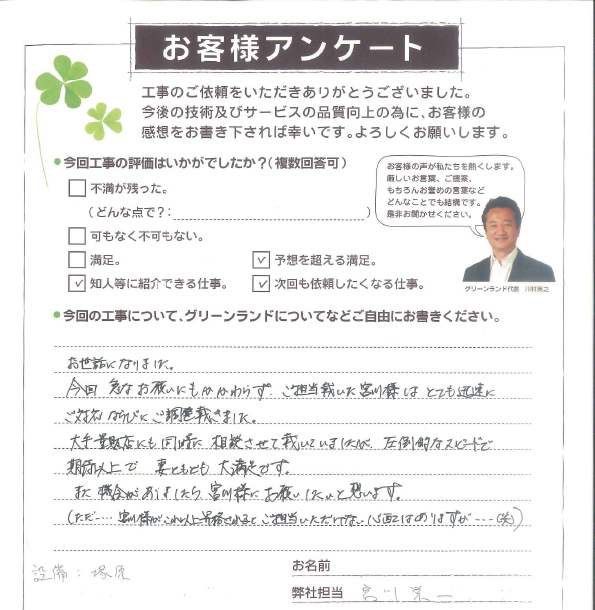 お客様アンケート
工事のご依頼をいただきありがとうございました。
今後の技術及びサービスの品質向上の為に、お客様の
感想をお書き下されば幸いです。よろしくお願いします。
今回工事の評価はいかがでしたか？（複数回答可）
お客様の声が私たちを熱くします。
厳しいお言葉、ご提案、
もちろんお誉めの言葉など
どんなことでも結構です。
是非お聞かせください。
不満が残った。
（どんな点で？：　）
可もなく不可もない。
満足。
予想を超える満足。
知人等に紹介できる仕事。
次回も依頼したくなる仕事。
グリーンランド代表　川村
今回の工事について、グリーンランドについてなどご自由にお書きください。
お世話になりました。
今回 急なお願いにもかかわらず ご担当戴いた宮川様は とても迅速に
ご対応 ならびに ご調整戴きました。
大手量販店にも同時に 相談させて戴いていましたが、圧倒的なスピードで
期待以上で 妻ともども 大満足です。
また 機会がありましたら 宮川様に お願いしたいと思います。
(ただ… 宮川様がこれ以上昇格されると ご担当いただけない 心配はありますが… (笑))
設備：塚原
お名前
弊社担当 宮川